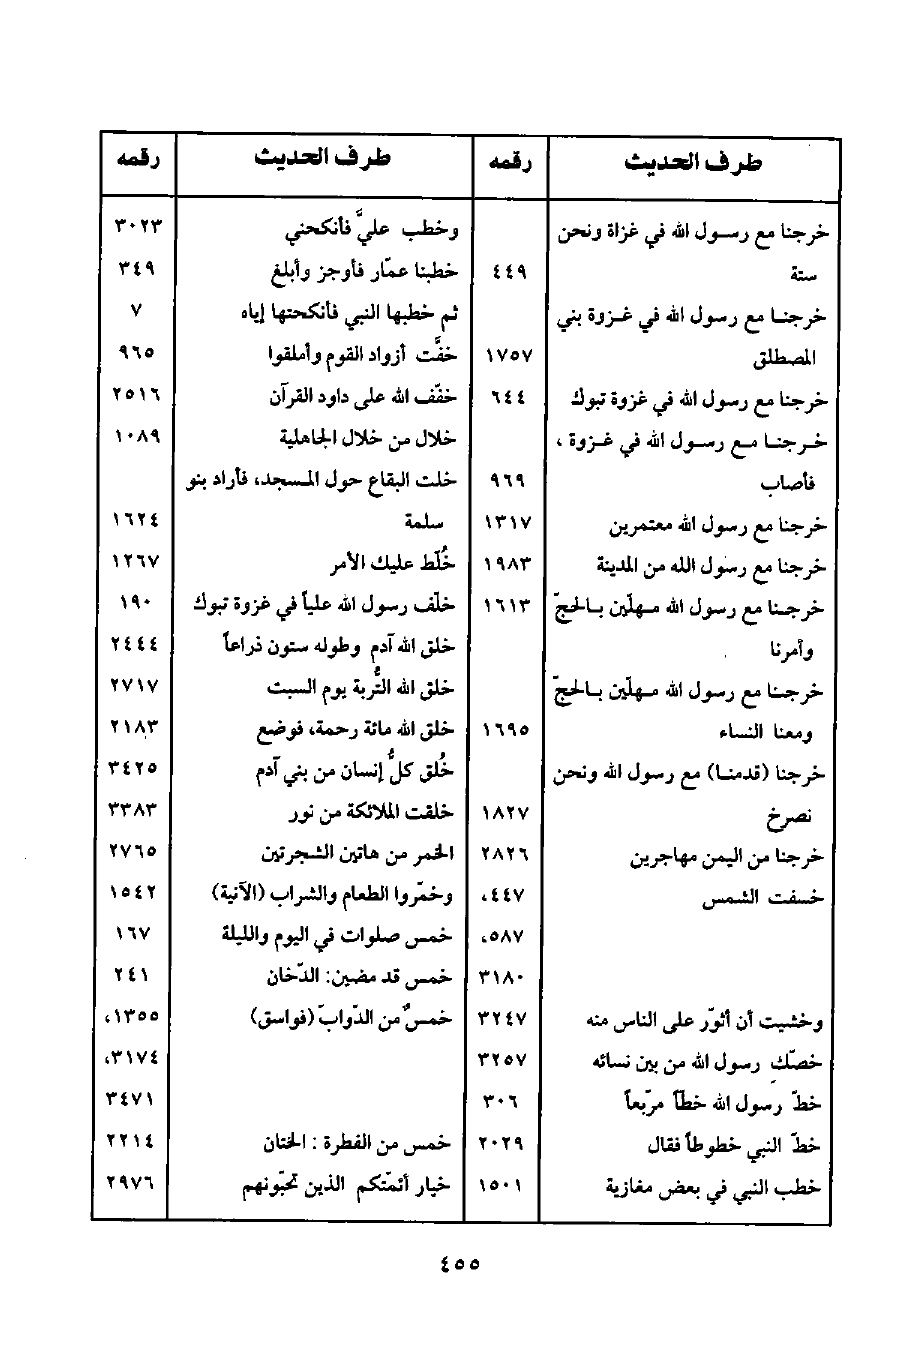 طرف الحديث رقمه
خرجنا مع رسول الله في غزاة ونحن
ستة ٤٤٩
خرجنا مع رسول الله في غزوة بني
المصطلق ١٧٥٧
خرجنا مع رسول الله في غزوة تبوك ٦٤٤
خرجنا مع رسول الله في غزوة ،
فأصاب ٩٦٩
خرجنا مع رسول الله معتمرين ١٣١٧
خرجنا مع رسول الله من المدينة ١٩٨٣
خرجنا مع رسول الله مهلّين بالحجّ ١٦١٣
وأمرنا
خرجنا مع رسول الله مهلّين بالحجّ
ومعنا النساء ١٦٩٥
خرجنا (قدمنا) مع رسول الله ونحن
نصرخ ١٨٢٧
خرجنا من اليمن مهاجرين ٢٨٢٦
خسفت الشمس ٤٤٧،
٥٨٧،
٣١٨٠
وخشيت أن أثوّر على الناس منه ٣٢٤٧
خصّك رسول الله من بين نسائه ٣٢٥٧
خطّ رسول الله خطاً مربّعاً ٣٠٦
خطّ النبي خطوطاً فقال ٢٠٢٩
خطب النبي في بعض مغازية ١٥٠١
طرف الحديث رقمه
وخطب عليَّ فأنكحني ٣٠٢٣
خطبنا عمّار فأوجز وأبلغ ٣٤٩
ثم خطبها النبي فأنكحتها إياه ٧
خفَّت أزواد القوم وأملقوا ٩٦٥
خفّف الله على داود القرآن ٢٥١٦
خلال من خلال الجاهلية ١٠٨٩
خلت البقاع حول المسجد، فأراد بنو
سلمة ١٦٢٤
خُلّط عليك الأمر ١٢٦٧
خلّف رسول الله علياً في غزوة تبوك ١٩٠
خلق الله آدم وطوله ستون ذراعاً ٢٤٤٤
خلق الله التُّربة يوم السبت ٢٧١٧
خلق الله مائة رحمة، فوضع ٢١٨٣
خُلق كلُّ إنسان من بني آدم ٣٤٢٥
خلقت الملائكة من نور ٣٣٨٣
الخمر من هاتين الشجرتين ٢٧٦٥
وخمّروا الطعام والشراب (الآنية) ١٥٤٢
خمس صلوات في اليوم والليلة ١٦٧
خمس قد مضين: الدّخان ٢٤١
خمسٌ من الدّوابّ (فواسق) ١٣٥٥،
٣١٧٤،
٣٤٧١
خمس من الفطرة : الختان ٢٢١٤
خيار أئمّتكم الذين تحبّونهم ٢٩٧٦
٤٥٥